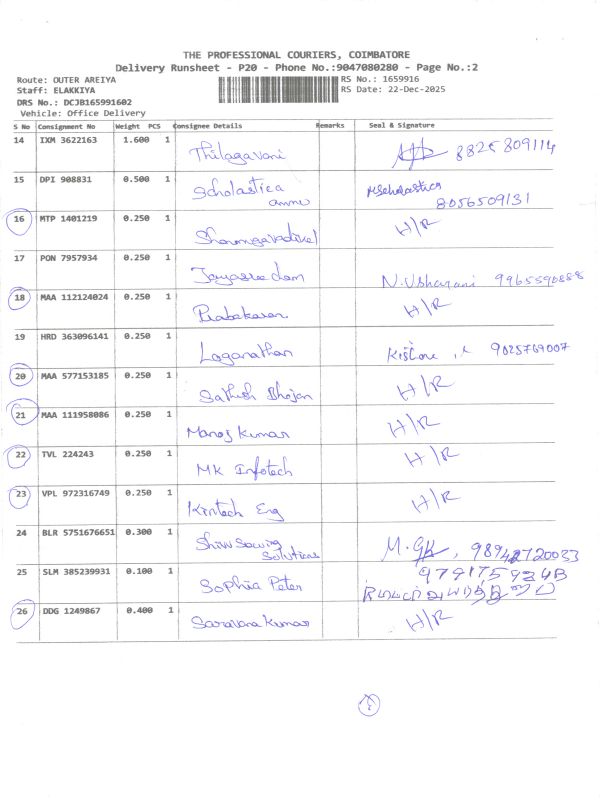 THE PROFESSIONAL COURIERS, COIMBATORE
Delivery Runsheet - P20 - Phone No.:9047080280 - Page No.:2
Route: OUTER AREIYA RS No.: 1659916
Staff: ELAKKIYA RS Date: 22-Dec-2025
DRS No.: DCJB165991602
Vehicle: Office Delivery
S No Consignment No Weight PCS Consignee Details Remarks Seal & Signature
14 IXM 3622163 1.600 1 Thilagavani 8825809114
15 DPI 908831 0.500 1 Scholastica ammu M Scholastica 8056509131
16 MTP 1401219 0.250 1 Shanmugavadivel H/R
17 PON 7957934 0.250 1 Jayasree dam N. Usharani 9965590888
18 MAA 112124024 0.250 1 Prabakaran H/R
19 HRD 363096141 0.250 1 Loganathan Kishore 9025769007
20 MAA 577153185 0.250 1 Sathish Bhojan H/R
21 MAA 111958086 0.250 1 Manoj Kumar H/R
22 TVL 224243 0.250 1 MK Infotech H/R
23 VPL 972316749 0.250 1 Kintech Eng H/R
24 BLR 5751676651 0.300 1 Shiva Sewing Solutions M. 
25 SLM 385239931 0.100 1 Sophia Peter
26 DDG 1249867 0.400 1 Saravana Kumar H/R